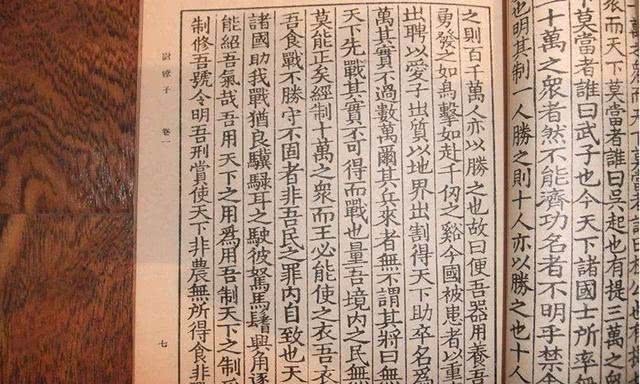 衆而天下莫當者誰曰吳起也有提三萬之
下莫當者誰曰武子也今天下諸國士所率
十萬之衆者然不能濟功名者不明乎禁
也明其制一人勝之則十人亦以勝之也十人
之則百千萬人亦以勝之也故曰便吾器用養吾
勇發之如鳥擊如赴千仞之谿今國被患者以重
出聘以愛子出質以地界出割得天下助卒名爲
萬其實不過數萬爾其兵來者無不謂其將曰無
天下先戰其實不可得而戰也量吾境內之民無
莫能正矣經制十萬之衆而王必能使之衣吾衣
吾食戰不勝守不固者非吾民之罪內自致也天
諸國助我戰猶良驥騄耳之駛彼駑馬鬐興角逐
能紹吾氣哉吾用天下之用爲用吾制天下之制
制修吾號令明吾刑賞使天下非農無所得食非
尉繚子 卷一 七